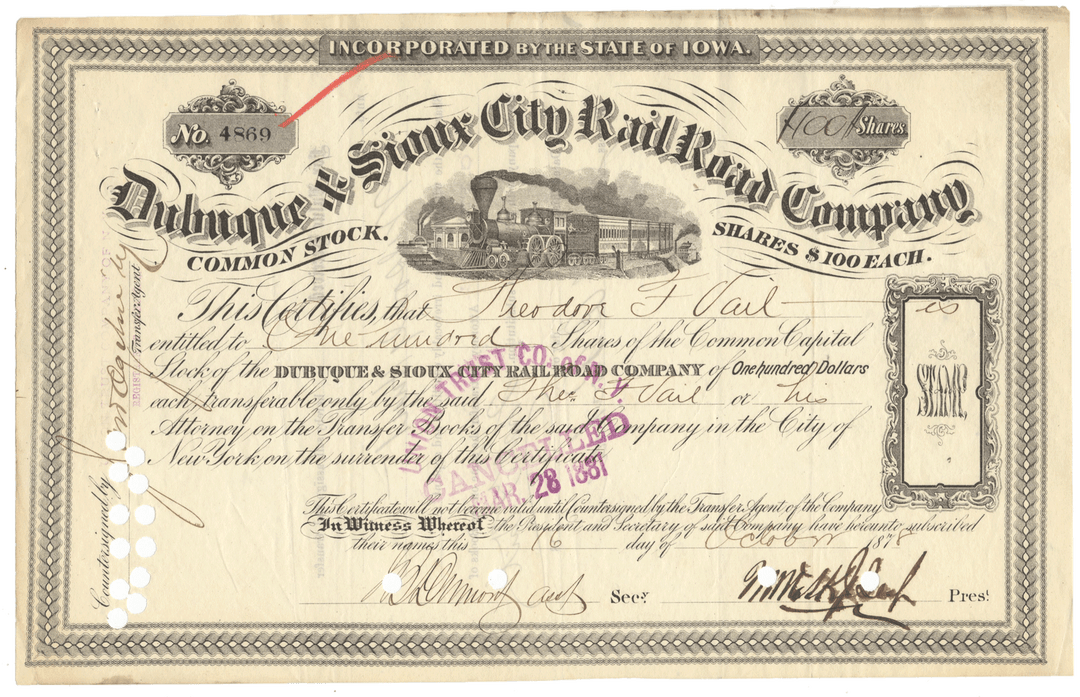 INCORPORATED BY THE STATE OF IOWA.
No. 4869
100 Shares
Dubuque & Sioux City Rail Road Company
COMMON STOCK.
SHARES $100 EACH.
This Certifies, that Theodore F Vail is
entitled to One hundred Shares of the Common Capital
Stock of the DUBUQUE & SIOUX CITY RAIL ROAD COMPANY of One hundred Dollars
each, transferable only by the said Theo F Vail or his
Attorney on the Transfer Books of the said Company in the City of
New York on the surrender of this Certificate
STAMP
UNION TRUST CO. OF N.Y.
CANCELLED
MAR. 28 1881
This Certificate will not become valid until Countersigned by the Transfer Agent of the Company
In Witness Whereof the President and Secretary of said Company have hereunto subscribed
their names this 16 day of October 1878
Asst Secy.
Prest.
Countersigned by
Transfer Agent